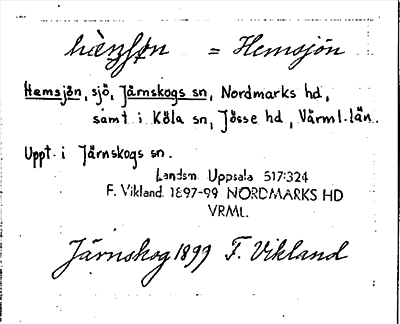 = Hemsjön
Hemsjön, sjö, Järnskogs sn, Nordmarks hd,
samt i Köla sn, Jösse hd, Värml. län.
Uppt. i Järnskogs sn.
Landsm. Uppsala 517:324
F. Vikland. 1897-99 NORDMARKS HD
VRML.
Järnskog 1899 F. Vikland